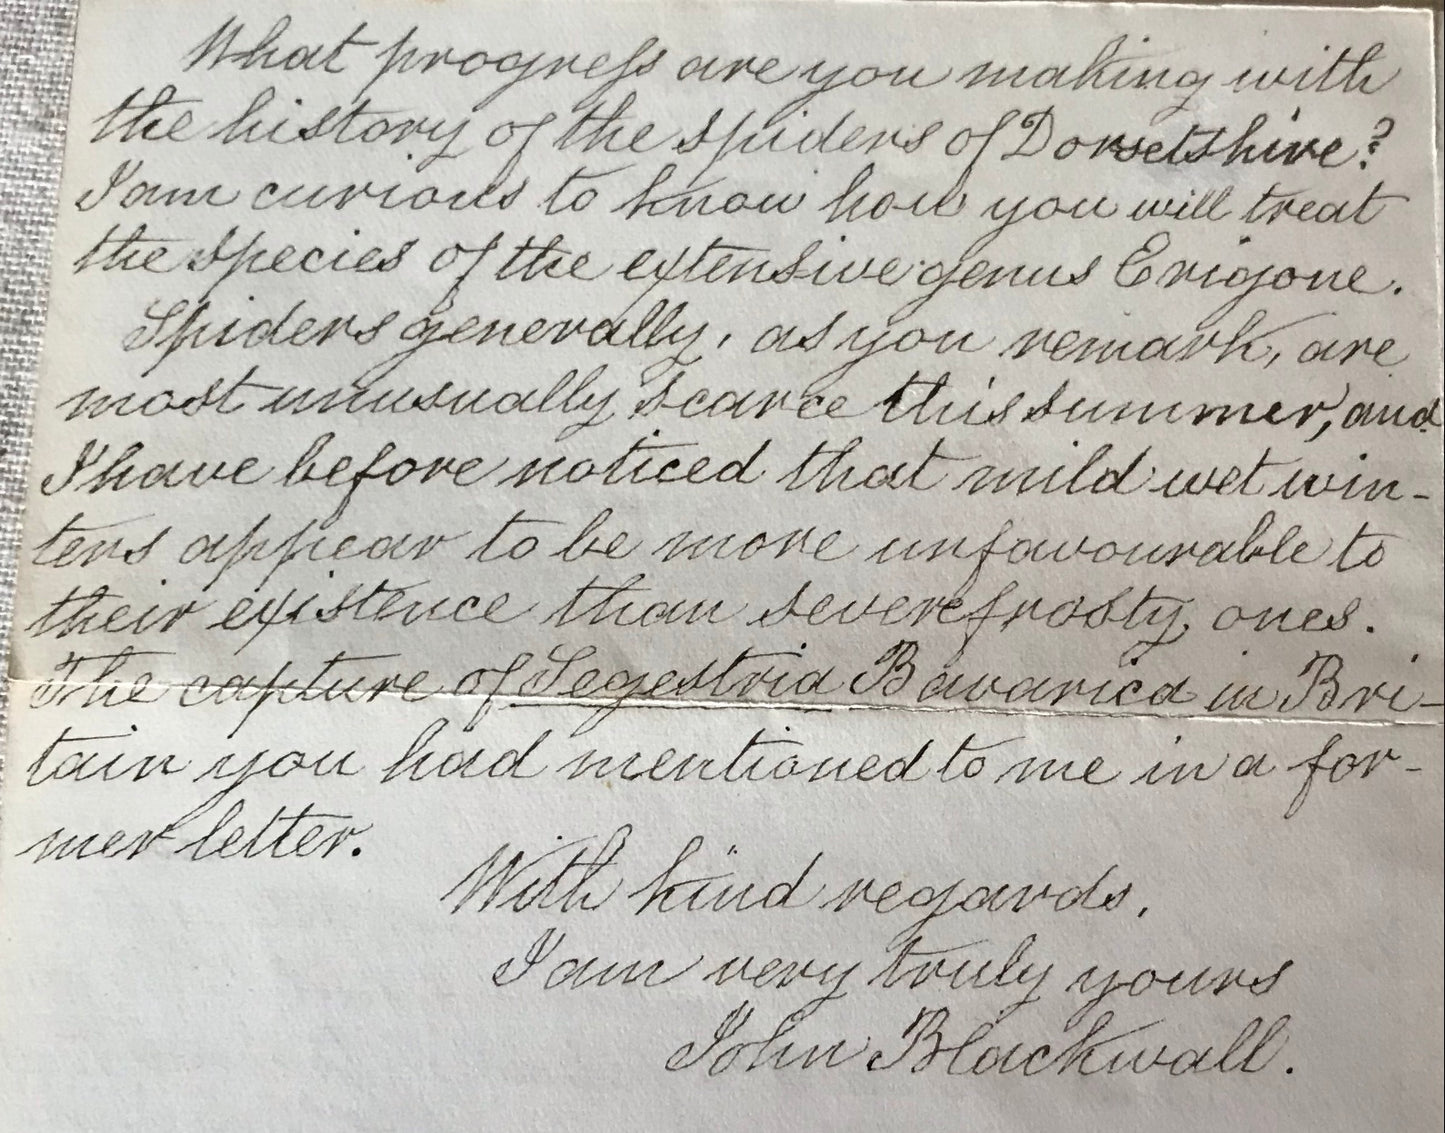 What progress are you making with
the history of the spiders of Dorsetshire?
I am curious to know how you will treat
the species of the extensive genus Erigone.
Spiders generally, as you remark, are
most unusually scarce this summer, and
I have before noticed that mild wet win-
ters appear to be more unfavourable to
their existence than severe frosty ones.
The capture of Segestria Bavarica in Bri-
tain you had mentioned to me in a for-
mer letter.
With kind regards,
I am very truly yours
John Blackwall.